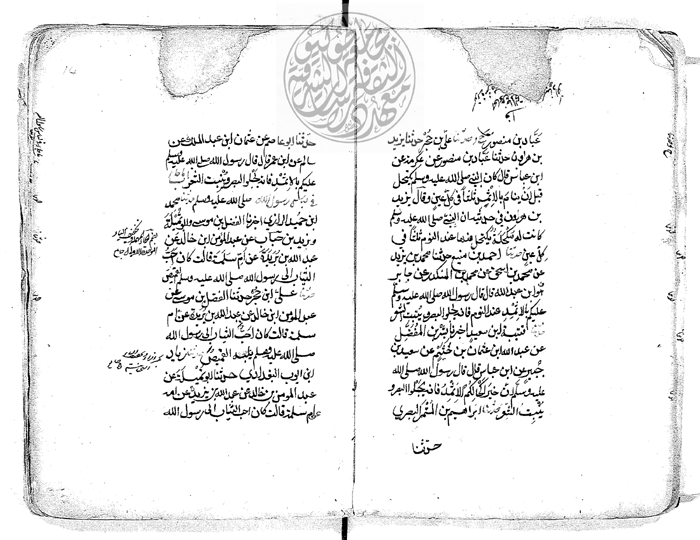 عباد بن منصور ح وحدثنا علي بن حجر حدثنا يزيد
بن هرون حدثنا عباد بن منصور عن عكرمة عن
ابن عباس قال كان النبي صلى الله عليه وسلم يكتحل
قبل ان ينام بالاثمد ثلثا في كل عين وقال يزيد
بن هرون في حديثه ان النبي صلى الله عليه وسلم
كانت له مكحلة يكتحل منها عند النوم ثلثا في
كل عين حدثنا احمد بن منيع حدثنا محمد بن يزيد
عن محمد بن اسحق عن محمد بن المنكدر عن جابر
هو ابن عبد الله قال قال رسول الله صلى الله عليه وسلم
عليكم بالاثمد عند النوم فانه يجلو البصر وينبت الشعر
حدثنا قتيبة ابن سعيد اخبرنا بشر بن المفضل
عن عبد الله ابن عثمان بن خثيم عن سعيد بن
جبير عن ابن عباس قال قال رسول الله صلى الله
عليه وسلم ان خير اكحالكم الاثمد فانه يجلو البصر و
ينبت الشعر حدثنا ابراهيم بن المستمر البصري
حدثنا
حدثنا ابو عاصم عن عثمان ابن عبد الملك عن
سالم عن ابن عمر قال قال رسول الله صلى الله عليه وسلم
عليكم بالاثمد فانه يجلو البصر وينبت الشعر باب ما جاء
في لباس رسول الله صلى الله عليه وسلم حدثنا محمد
ابن حميد الرازي اخبرنا الفضل بن موسى وابو تميلة
وزيد بن حباب عن عبد المومن ابن خالد عن
عبد الله بن بريدة عن ام سلمة قالت كان احب
الثياب الى رسول الله صلى الله عليه وسلم القميص
حدثنا علي ابن حجر حدثنا الفضل بن موسى عن
عبد المومن ابن خالد عن عبد الله بن بريدة عن ام
سلمة قالت كان احب الثياب الى رسول الله
صلى الله عليه وسلم يلبسه القميص حدثنا زياد
ابن ايوب البغدادي حدثنا ابو تميلة عن
عبد المومن بن خالد عن عبد الله بن بريدة عن امه
عن ام سلمة قالت كان احب الثياب الى رسول الله